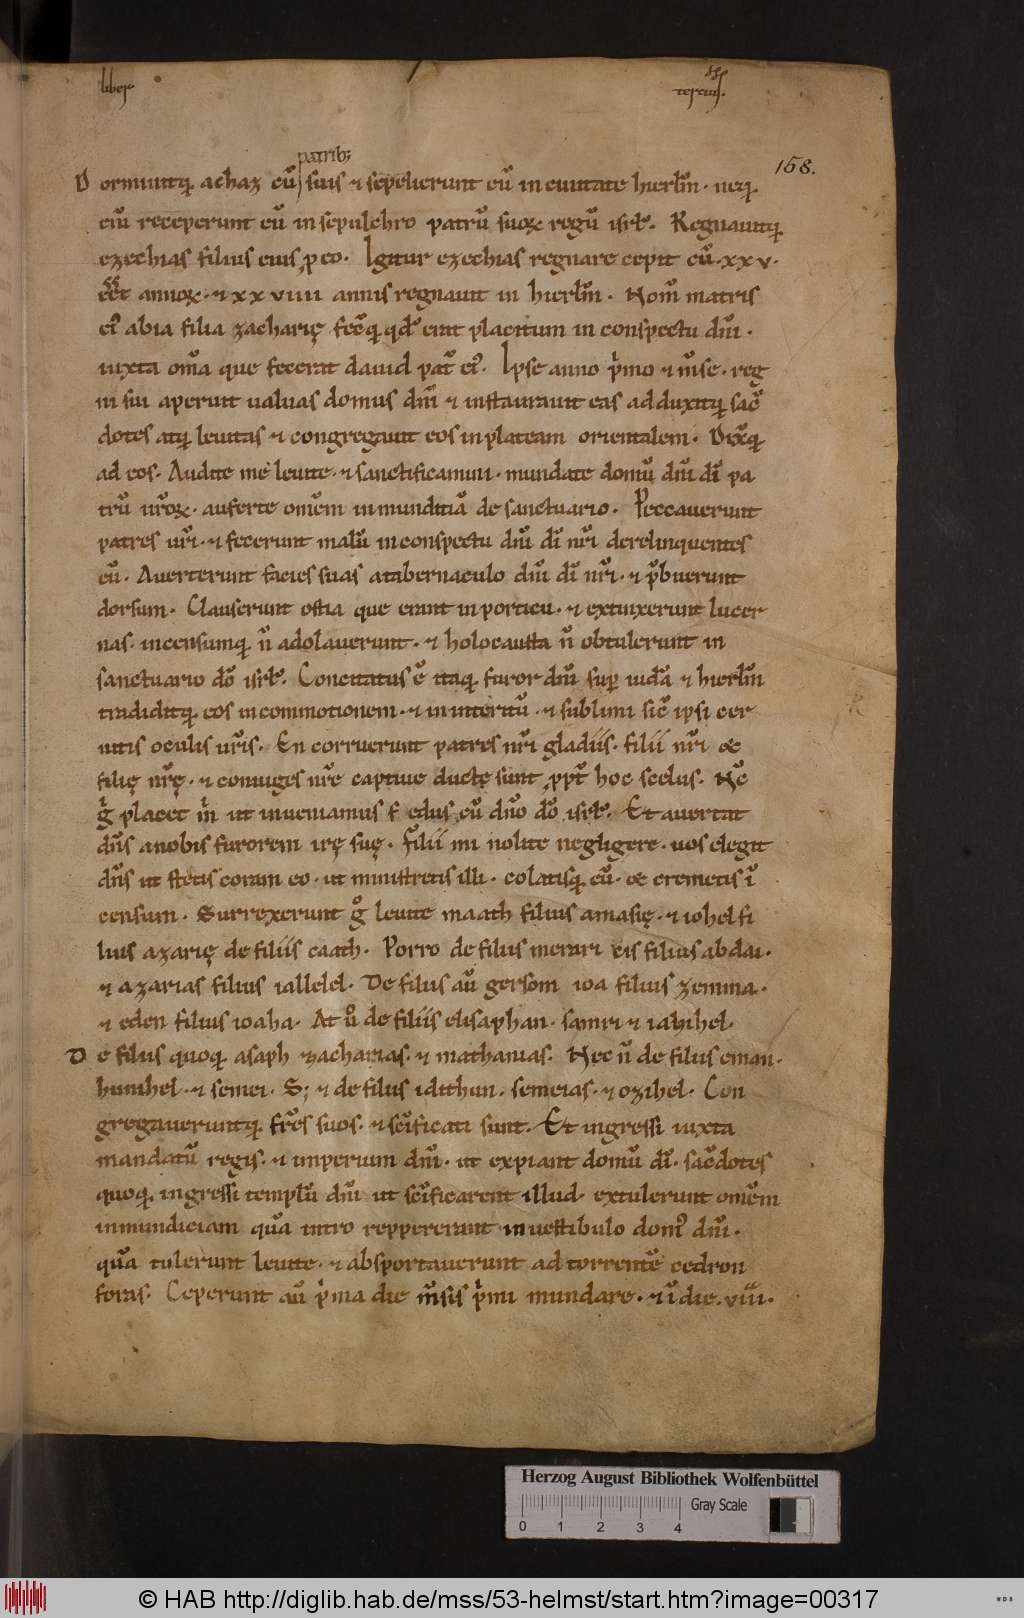 liber
tertius.
158.
patrib;
Dormiuitq; achaz cū suis & sepelierunt eū in ciuitate hierłm. neq;
eni̅ receperunt eū in sepulchro patrū suoꝝ regū isrł. Regnauitq;
ezechias filius eius ꝓ eo. Igitur ezechias regnare cepit cū .xxv.
eēt annoꝝ. & xxviiii annis regnauit in hierłm. Nom̄ matris
ei᾽ abia filia zacharię fecitq; qd̄ erat placitum in conspectu dn̄i.
iuxta om̄a que fecerat dauid pat̄ ei᾽. Ipse anno p̍mo & m̄se. reg
ni sui aperuit ualuas domus dn̄i & instaurauit eas adduxitq; sac̄
dotes atq; leuitas & congregauit eos in plateam orientalem. Dixitq;
ad eos. Audite me leuite. & sanctificamini. mundate domū dn̄i dī pa
trū ur̄oꝝ. auferte omēm inmunditiā de sanctuario. Peccauerunt
patres ur̄i. & fecerunt malū in conspectu dn̄i dī nr̄i derelinquentes
eū. Auerterunt facies suas a tabernaculo dn̄i dī nr̄i. & p̄buerunt
dorsum. Clauserunt ostia que erant in porticu. & extinxerunt lucer
nas. incensumq; n̄ adolauerunt. & holocausta n̄ obtulerunt in
sanctuario dō isrł. Concitatus ē itaq; furor dn̄i sup̱ iudā & hierłm
tradiditq; eos in commotionem. & in interitū. & sublimi sic̄ ipsi cer
nitis oculis ur̄is. En corruerunt patres nr̄i gladiis. filii nr̄i &
filię nr̄ę. & coniuges nr̄e captiue ductę sunt ꝓpt̄ hoc scelus. Nc̄
g̍ placet m̍ ut inueniamus fedus cū dn̄o dō isrł. Et auertat
dn̄s a nobis furorem irę suę. Filii mi nolite negligere. uos elegit
dn̄s ut stetis coram eo. ut ministretis illi. colatisq; eū. & cremetis ī
censum. Surrexerunt gͦ leuite maath filius amasię. & iohel fi
lius azarię de filiis caath. Porro de filiis merari cis filius abdai.
& azarias filius iallelel. De filiis aū gersom ioa filius zemma.
& eden filius ioaha. At uͦ de filiis elisaphan. samri & iahihel.
De filiis quoq; asaph zacharias. & mathanias. Nec n̄ de filiis eman.
huiuihel. & semei. S; & de filiis idithun. semeias. & ozihel. Con
gregaueruntq; fr̄es suos. & sc̄ificati sunt. Et ingressi iuxta
mandatū regis. & imperium dn̄i. ut expiant domū dī. sac̄dotes
quoq; ingressi templū dn̄i ut sc̄ificarent illud. extulerunt omēm
inmundiciam quā intro reppererant in uestibulo dom᾽ dn̄i.
quā tulerunt leuite. & absportauerunt ad torrentē cedron
foras. Ceperunt aū p̍ma die m̄sis p̍mi mundare. & ī die .viii.
Herzog August Bibliothek Wolfenbüttel
Gray Scale
0 1 2 3 4
© HAB http://diglib.hab.de/mss/53-helmst/start.htm?image=00317